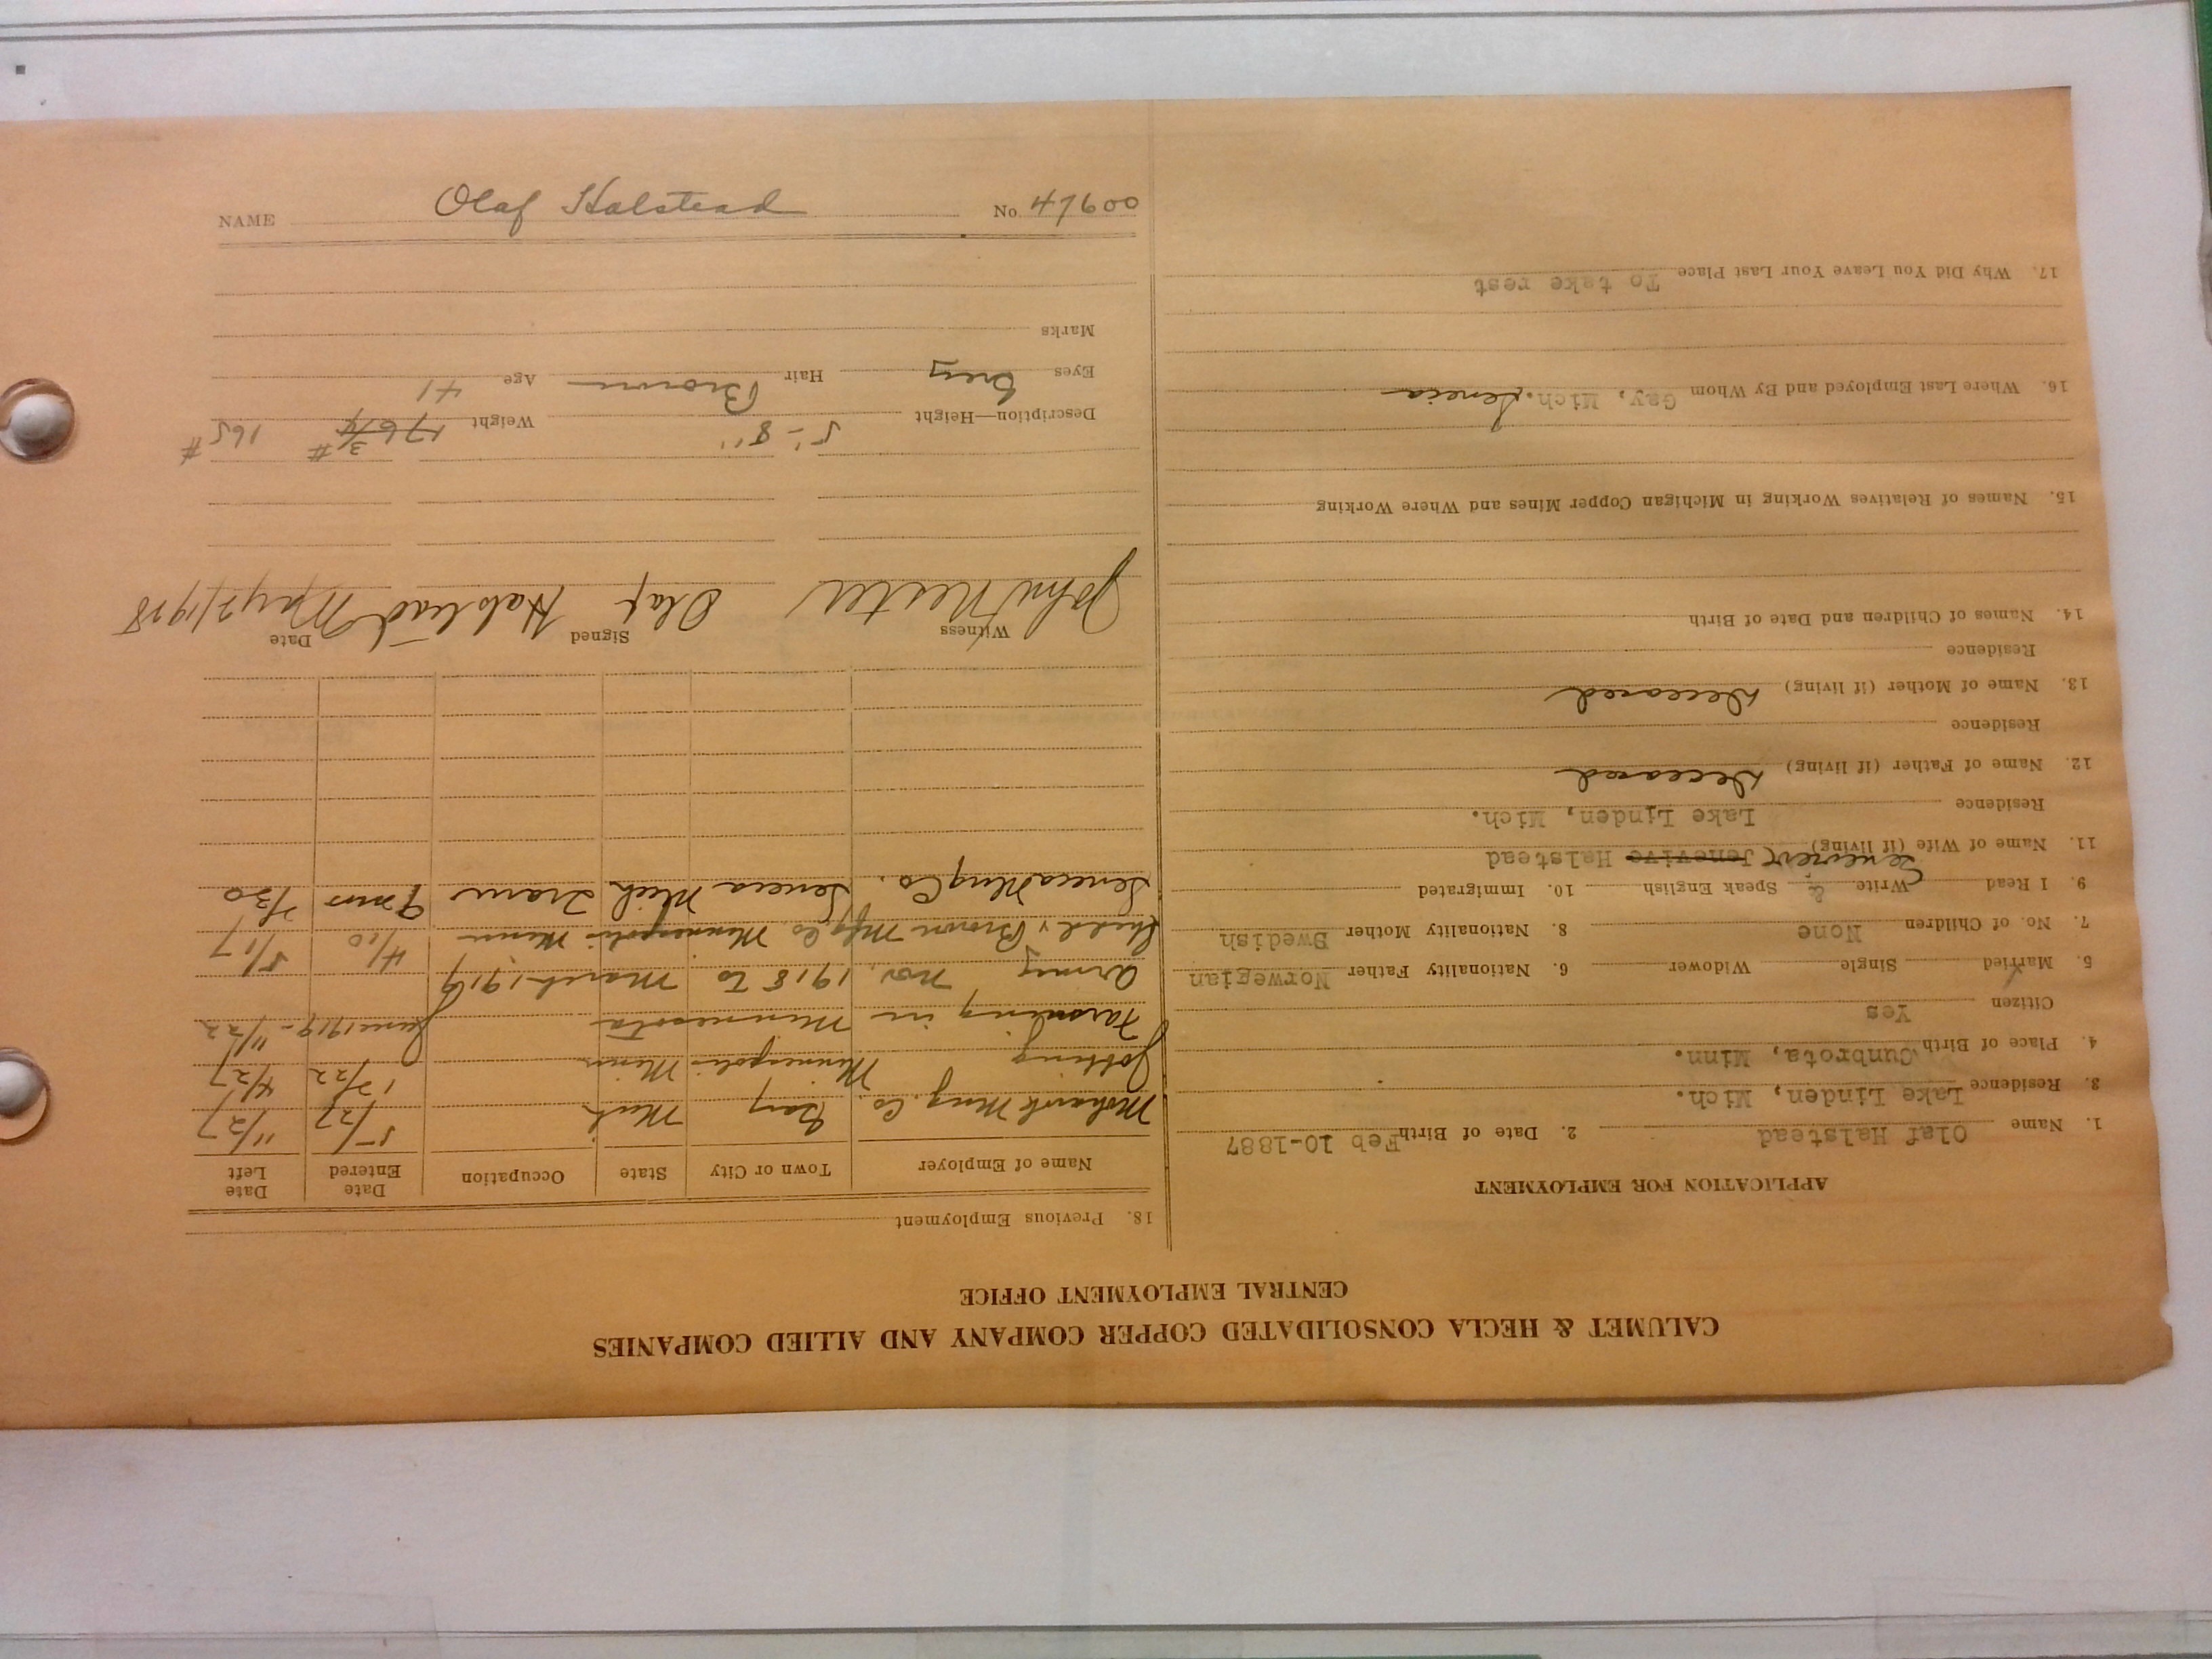 CALUMET & HECLA CONSOLIDATED COPPER COMPANY AND ALLIED COMPANIES
CENTRAL EMPLOYMENT OFFICE
APPLICATION FOR EMPLOYMENT
1. Name Olaf Halstead 2. Date of Birth Feb 10-1887
3. Residence Lake Linden, Mich.
4. Place of Birth Cunbrota, Minn.
Citizen Yes
5. Married Single Widower 6. Nationality Father Norwegian
7. No. of Children None 8. Nationality Mother Swedish
9. I Read Write & Speak English 10. Immigrated
11. Name of Wife (if living) Jenevive Halstead
Residence Lake Linden, Mich.
12. Name of Father (if living) Deceased
Residence
13. Name of Mother (if living) Deceased
Residence
14. Names of Children and Date of Birth
15. Names of Relatives Working in Michigan Copper Mines and Where Working
16. Where Last Employed and By Whom Gay, Mich. Seneca
17. Why Did You Leave Your Last Place To take rest
18. Previous Employment
Name of Employer Town or City State Occupation Date Entered Date Left
Mohawk Mng. Co. Gay Mich 5/27 11/27
Jobbing Minneapolis Minn 12/22 4/27
Farming in Minnesota June 1919 - 11/22
Army Nov. 1918 to March 1919
& Brown Mfg. Co Minneapolis Minn 4/10 5/17
Seneca Mng Co. Seneca Mich Tram 9 mos 7/30
Witness Signed Date
John Nester Olaf Halstead May 2/1928
Description—Height 5'-8" Weight 176 3/4 # 165 #
Eyes Grey Hair Brown Age 41
Marks
NAME Olaf Halstead No. 47600